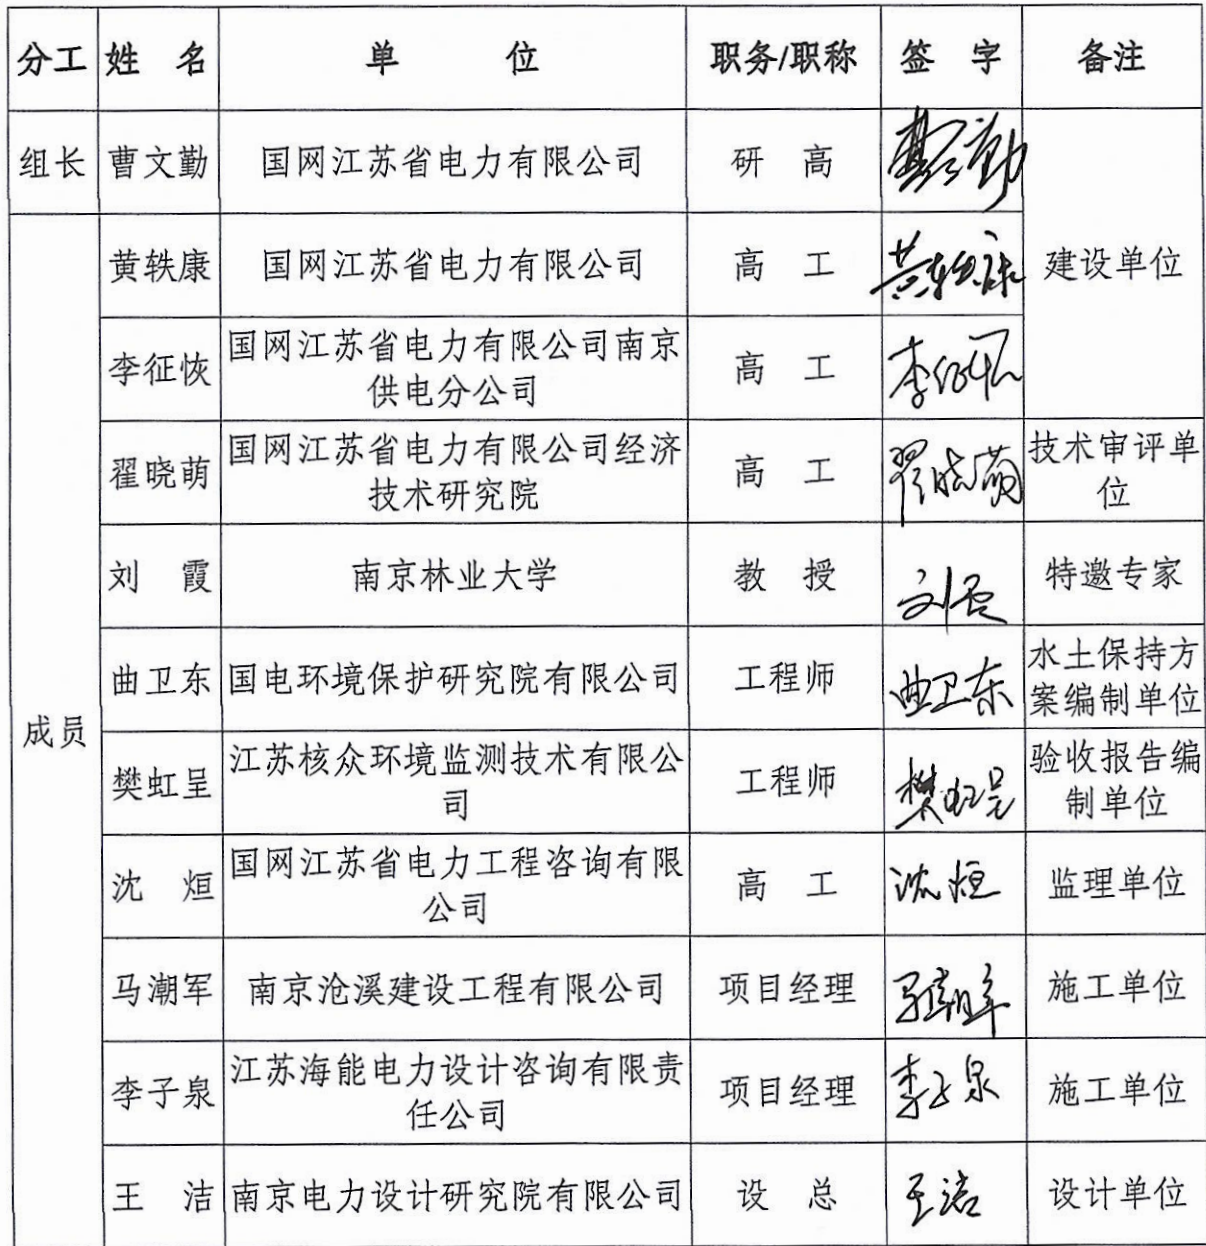 分工 姓 名 单 位 职务/职称 签 字 备注
组长 曹文勤 国网江苏省电力有限公司 研 高 曹文勤
黄轶康 国网江苏省电力有限公司 高 工 黄轶康 建设单位
李征恢 国网江苏省电力有限公司南京
供电分公司 高 工 李征恢
翟晓萌 国网江苏省电力有限公司经济
技术研究院 高 工 翟晓萌 技术审评单
位
刘 霞 南京林业大学 教 授 刘霞 特邀专家
成员
曲卫东 国电环境保护研究院有限公司 工程师 曲卫东 水土保持方
案编制单位
樊虹呈 江苏核众环境监测技术有限公
司 工程师 樊虹呈 验收报告编
制单位
沈 烜 国网江苏省电力工程咨询有限
公司 高 工 沈烜 监理单位
马潮军 南京沧溪建设工程有限公司 项目经理 马潮军 施工单位
李子泉 江苏海能电力设计咨询有限责
任公司 项目经理 李子泉 施工单位
王 洁 南京电力设计研究院有限公司 设 总 王洁 设计单位